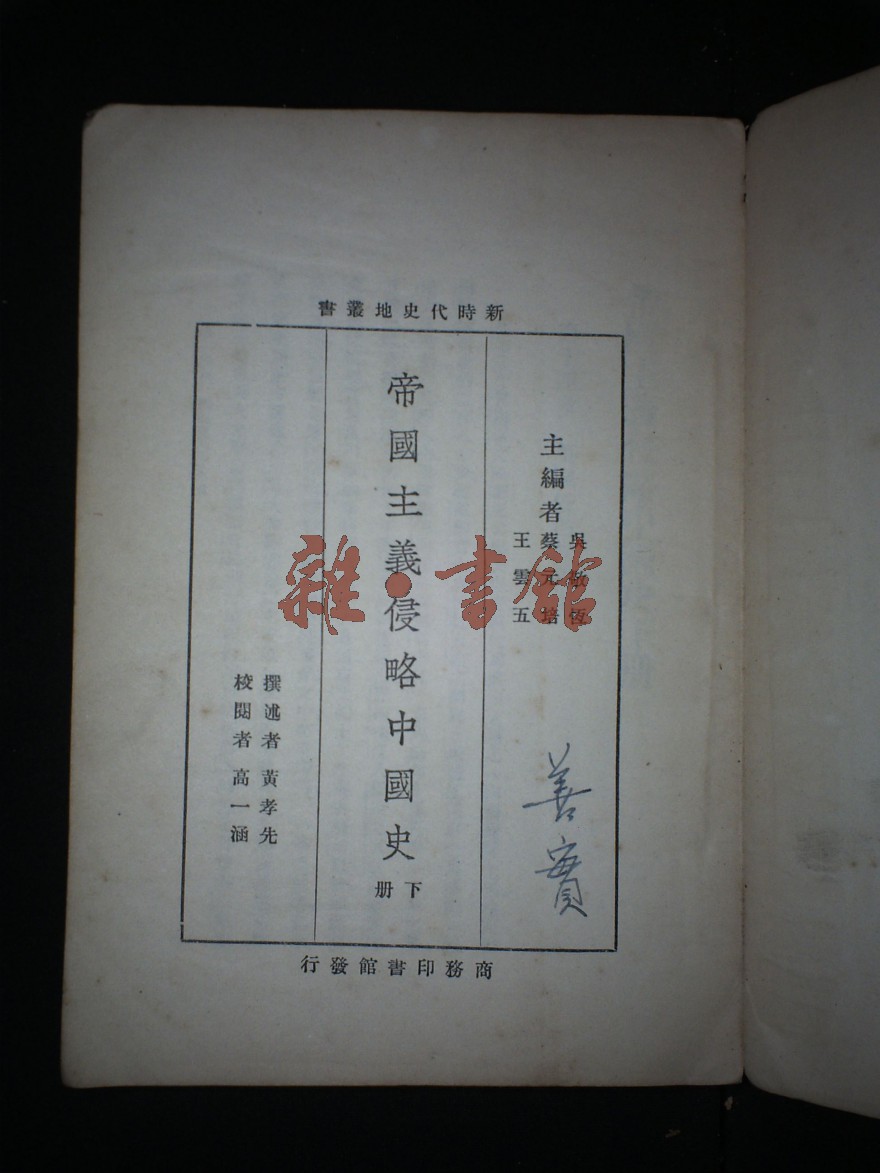 新時代史地叢書
主編者
吳敬恆
蔡元培
王雲五
帝國主義侵略中國史
下册
撰述者 黃孝先
校閱者 高一涵
商務印書館發行
善實
雜·書館